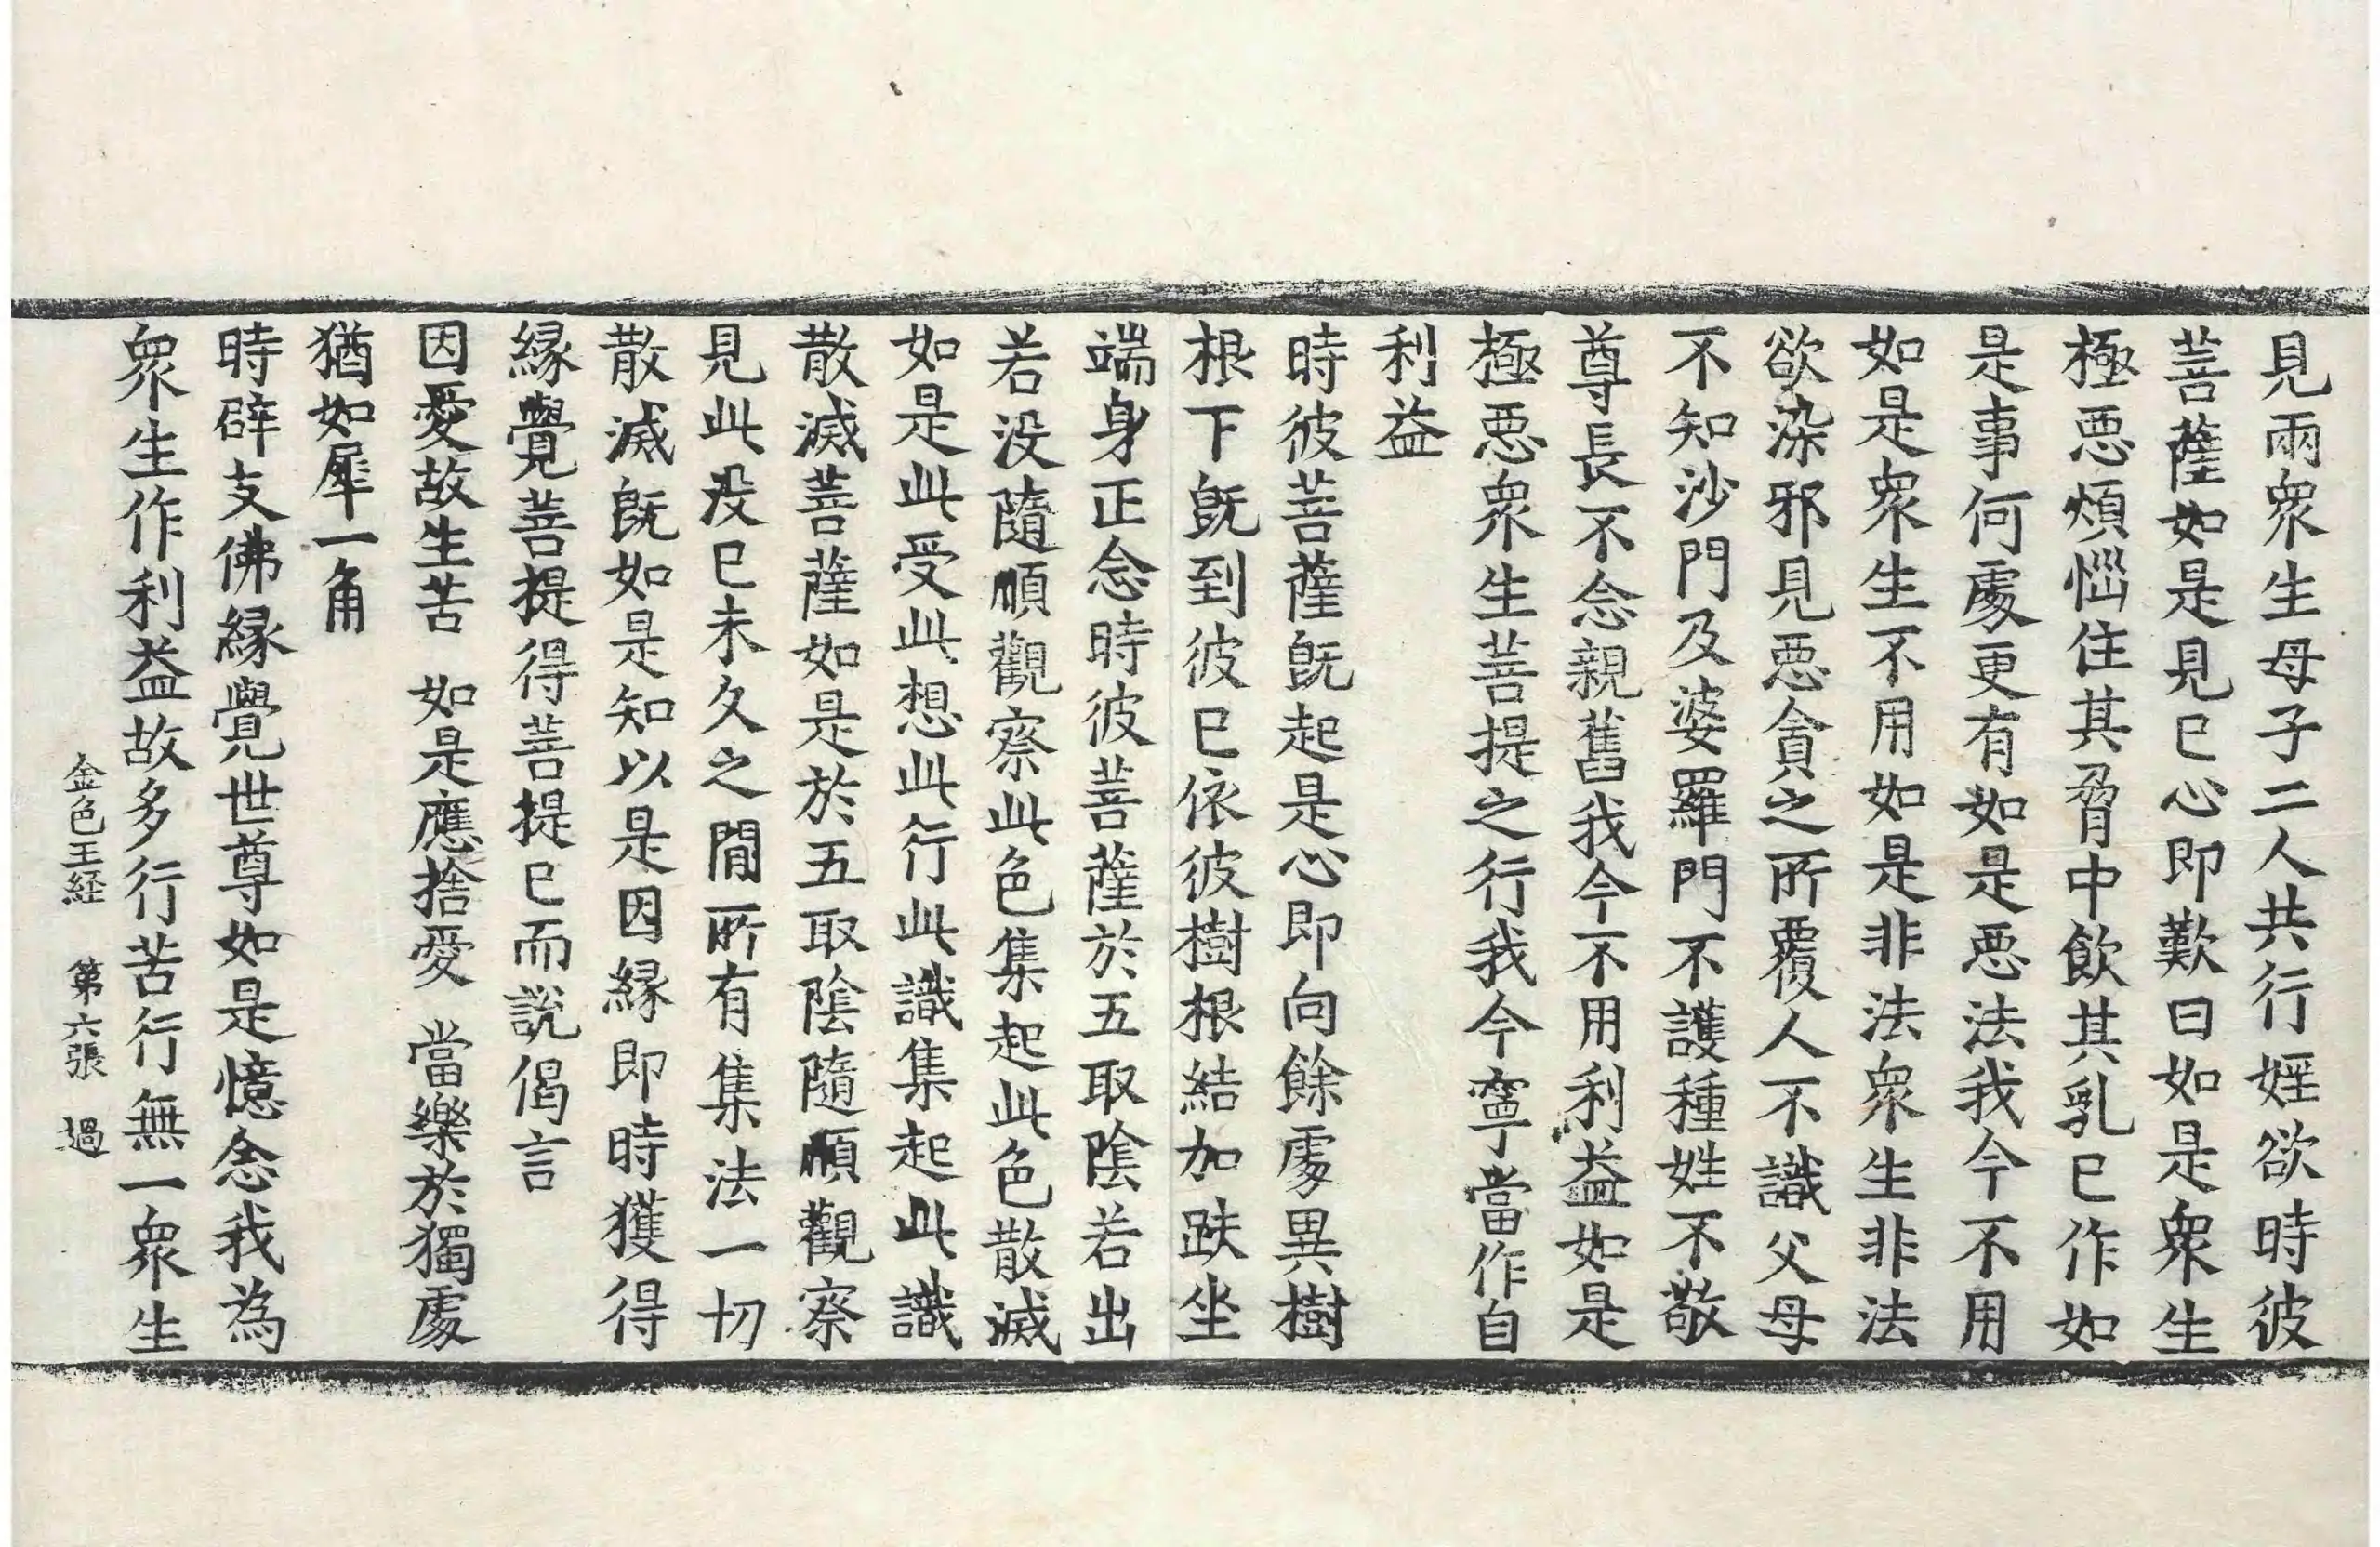 見兩衆生母子二人共行婬欲時彼
菩薩如是見已心即歎曰如是衆生
極惡煩惱住其脅中飲其乳已作如
是事何處更有如是惡法我今不用
如是衆生不用如是非法衆生非法
欲染邪見惡貪之所覆人不識父母
不知沙門及婆羅門不護種姓不敬
尊長不念親舊我今不用利益如是
極惡衆生菩提之行我今寧當作自
利益
時彼菩薩既起是心即向餘處異樹
根下既到彼已依彼樹根結加趺坐
端身正念時彼菩薩於五取陰若出
若没隨順觀察此色集起此色散滅
如是此受此想此行此識集起此識
散滅菩薩如是於五取陰隨順觀察
見此没已未久之間所有集法一切
散滅既如是知以是因緣即時獲得
緣覺菩提得菩提已而說偈言
因愛故生苦　如是應捨愛　當樂於獨處
猶如犀一角
時辟支佛緣覺世尊如是憶念我為
衆生作利益故多行苦行無一衆生
金色王経　第六張　過